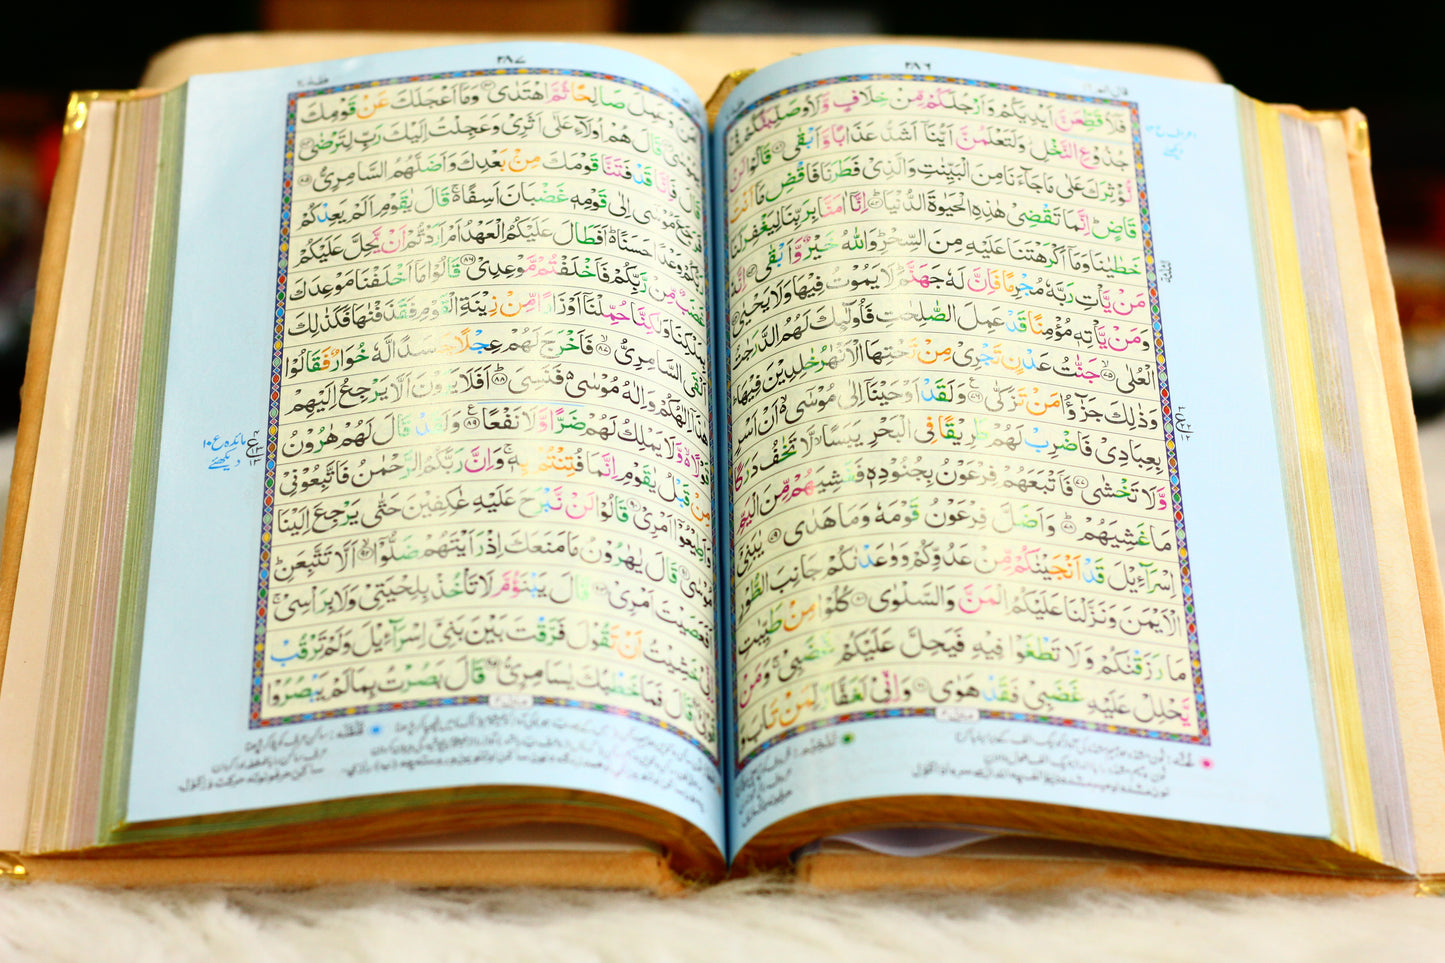 ٢٨٦
فَلَاُقَطِّعَنَّ اَيْدِيَكُمْ وَاَرْجُلَكُمْ مِّنْ خِلَافٍ وَّلَاُوصَلِّبَنَّكُمْ فِيْ
جُذُوْعِ النَّخْلِ وَلَتَعْلَمُنَّ اَيُّنَاۤ اَشَدُّ عَذَابًا وَّاَبْقٰى ﴿۷۱﴾ قَالُوْا لَنْ
نُّؤْثِرَكَ عَلٰى مَا جَآءَنَا مِنَ الْبَيِّنٰتِ وَالَّذِيْ فَطَرَنَا فَاقْضِ مَاۤ اَنْتَ
قَاضٍ ؕ اِنَّمَا تَقْضِيْ هٰذِهِ الْحَيٰوةَ الدُّنْيَا ﴿۷۲﴾ اِنَّاۤ اٰمَنَّا بِرَبِّنَا لِيَغْفِرَ لَنَا
خَطٰيٰنَا وَمَاۤ اَكْرَهْتَنَا عَلَيْهِ مِنَ السِّحْرِ ؕ وَاللّٰهُ خَيْرٌ وَّاَبْقٰى ﴿۷۳﴾ اِنَّهٗ
مَنْ يَّاْتِ رَبَّهٗ مُجْرِمًا فَاِنَّ لَهٗ جَهَنَّمَ ؕ لَا يَمُوْتُ فِيْهَا وَلَا يَحْيٰى
وَمَنْ يَّاْتِهٖ مُؤْمِنًا قَدْ عَمِلَ الصّٰلِحٰتِ فَاُولٰٓئِكَ لَهُمُ الدَّرَجٰتُ
الْعُلٰى ﴿۷۵﴾ جَنّٰتُ عَدْنٍ تَجْرِيْ مِنْ تَحْتِهَا الْاَنْهٰرُ خٰلِدِيْنَ فِيْهَا
وَذٰلِكَ جَزٰٓؤُا مَنْ تَزَكّٰى ﴿۷۶﴾ وَلَقَدْ اَوْحَيْنَاۤ اِلٰى مُوْسٰۤى اَنْ اَسْرِ
بِعِبَادِيْ فَاضْرِبْ لَهُمْ طَرِيْقًا فِي الْبَحْرِ يَبَسًا لَّا تَخٰفُ دَرَكًا
وَّلَا تَخْشٰى ﴿۷۷﴾ فَاَتْبَعَهُمْ فِرْعَوْنُ بِجُنُوْدِهٖ فَغَشِيَهُمْ مِّنَ الْيَمِّ
مَا غَشِيَهُمْ ﴿۷۸﴾ وَاَضَلَّ فِرْعَوْنُ قَوْمَهٗ وَمَا هَدٰى ﴿۷۹﴾ يٰبَنِيْۤ
اِسْرَآءِيْلَ قَدْ اَنْجَيْنٰكُمْ مِّنْ عَدُوِّكُمْ وَوٰعَدْنٰكُمْ جَانِبَ الطُّوْرِ
الْاَيْمَنَ وَنَزَّلْنَا عَلَيْكُمُ الْمَنَّ وَالسَّلْوٰى ﴿۸۰﴾ كُلُوْا مِنْ طَيِّبٰتِ
مَا رَزَقْنٰكُمْ وَلَا تَطْغَوْا فِيْهِ فَيَحِلَّ عَلَيْكُمْ غَضَبِيْ ۚ وَمَنْ
يَّحْلِلْ عَلَيْهِ غَضَبِيْ فَقَدْ هَوٰى ﴿۸۱﴾ وَاِنِّيْ لَغَفَّارٌ لِّمَنْ تَابَ وَ
٢٨٧
اٰمَنَ وَعَمِلَ صَالِحًا ثُمَّ اهْتَدٰى ﴿۸۲﴾ وَمَاۤ اَعْجَلَكَ عَنْ قَوْمِكَ
يٰمُوْسٰى ﴿۸۳﴾ قَالَ هُمْ اُولَآءِ عَلٰۤى اَثَرِيْ وَعَجِلْتُ اِلَيْكَ رَبِّ لِتَرْضٰى ﴿۸۴﴾
قَالَ فَاِنَّا قَدْ فَتَنَّا قَوْمَكَ مِنْۢ بَعْدِكَ وَاَضَلَّهُمُ السَّامِرِيُّ ﴿۸۵﴾
فَرَجَعَ مُوْسٰۤى اِلٰى قَوْمِهٖ غَضْبَانَ اَسِفًا ۚ قَالَ يٰقَوْمِ اَلَمْ يَعِدْكُمْ
رَبُّكُمْ وَعْدًا حَسَنًا ؕ اَفَطَالَ عَلَيْكُمُ الْعَهْدُ اَمْ اَرَدْتُّمْ اَنْ يَّحِلَّ عَلَيْكُمْ
غَضَبٌ مِّنْ رَّبِّكُمْ فَاَخْلَفْتُمْ مَّوْعِدِيْ ﴿۸۶﴾ قَالُوْا مَاۤ اَخْلَفْنَا مَوْعِدَكَ
بِمَلْكِنَا وَلٰكِنَّا حُمِّلْنَاۤ اَوْزَارًا مِّنْ زِيْنَةِ الْقَوْمِ فَقَذَفْنٰهَا فَكَذٰلِكَ
اَلْقَى السَّامِرِيُّ ﴿۸۷﴾ فَاَخْرَجَ لَهُمْ عِجْلًا جَسَدًا لَّهٗ خُوَارٌ فَقَالُوْا
هٰذَاۤ اِلٰهُكُمْ وَاِلٰهُ مُوْسٰى ۚ فَنَسِيَ ﴿۸۸﴾ اَفَلَا يَرَوْنَ اَلَّا يَرْجِعُ اِلَيْهِمْ
قَوْلًا ۙ وَّلَا يَمْلِكُ لَهُمْ ضَرًّا وَّلَا نَفْعًا ﴿۸۹﴾ وَلَقَدْ قَالَ لَهُمْ هٰرُوْنُ
مِنْ قَبْلُ يٰقَوْمِ اِنَّمَا فُتِنْتُمْ بِهٖ ۚ وَاِنَّ رَبَّكُمُ الرَّحْمٰنُ فَاتَّبِعُوْنِيْ
وَاَطِيْعُوْۤا اَمْرِيْ ﴿۹۰﴾ قَالُوْا لَنْ نَّبْرَحَ عَلَيْهِ عٰكِفِيْنَ حَتّٰى يَرْجِعَ اِلَيْنَا
مُوْسٰى ﴿۹۱﴾ قَالَ يٰهٰرُوْنُ مَا مَنَعَكَ اِذْ رَاَيْتَهُمْ ضَلُّوْۤا ﴿۹۲﴾ اَلَّا تَتَّبِعَنِ
اَفَعَصَيْتَ اَمْرِيْ ﴿۹۳﴾ قَالَ يَبْنَؤُمَّ لَا تَاْخُذْ بِلِحْيَتِيْ وَلَا بِرَاْسِيْ ۚ
اِنِّيْ خَشِيْتُ اَنْ تَقُوْلَ فَرَّقْتَ بَيْنَ بَنِيْۤ اِسْرَآءِيْلَ وَلَمْ تَرْقُبْ
قَوْلِيْ ﴿۹۴﴾ قَالَ فَمَا خَطْبُكَ يٰسَامِرِيُّ ﴿۹۵﴾ قَالَ بَصُرْتُ بِمَا لَمْ يَبْصُرُوْا